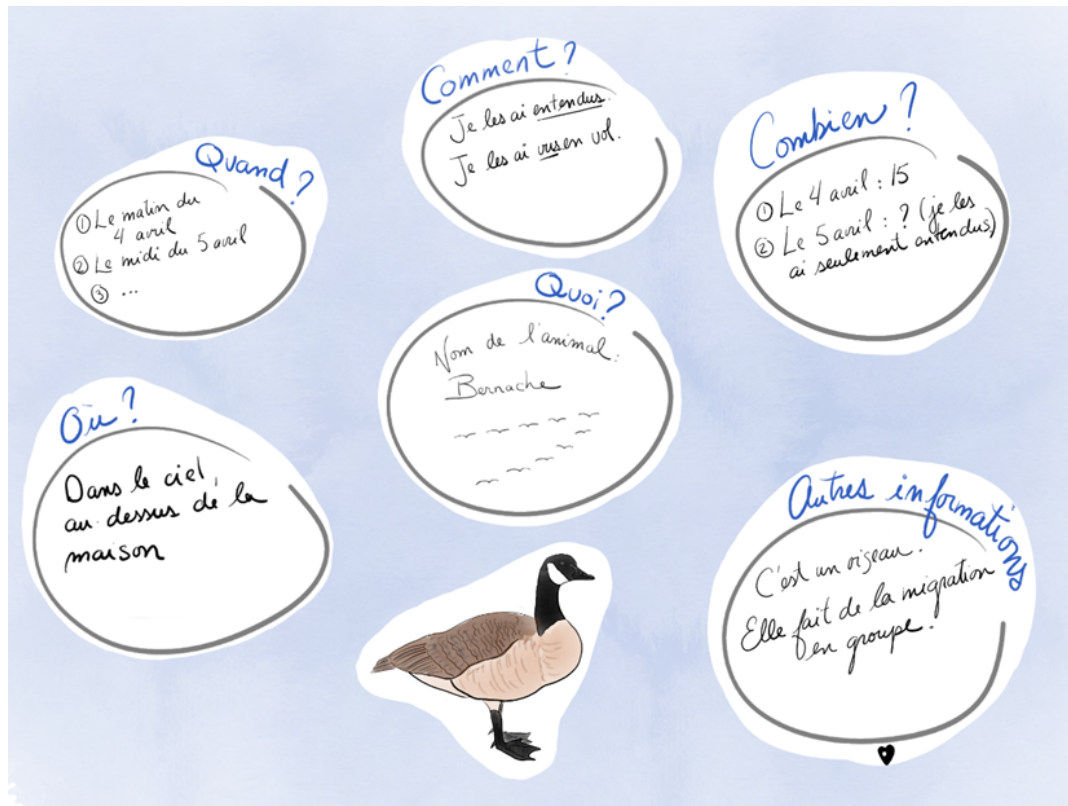 Quand ?
① Le matin du
4 avril
② Le midi du 5 avril
③ ...
Comment ?
Je les ai entendus.
Je les ai vus en vol.
Combien ?
① Le 4 avril : 15
② Le 5 avril : ? (je les
ai seulement entendus)
Quoi ?
Nom de l'animal :
Bernache
Où ?
Dans le ciel,
au-dessus de la
maison
Autres informations
C'est un oiseau.
Elle fait de la migration
en groupe.